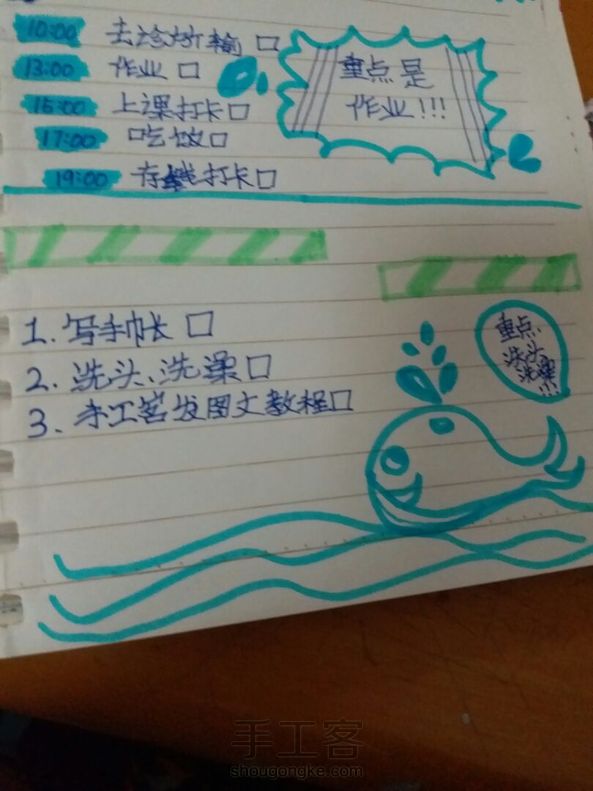 10:00 去诊所输 □
13:00 作业 □
15:00 上课打卡 □
17:00 吃饭 □
19:00 存钱打卡 □
重点是
作业!!!
1. 写手帐 □
2. 洗头、洗澡 □
3. 手工客发图文教程 □
重点、
洗头、
洗澡
!!!
手工客
shougongke.com